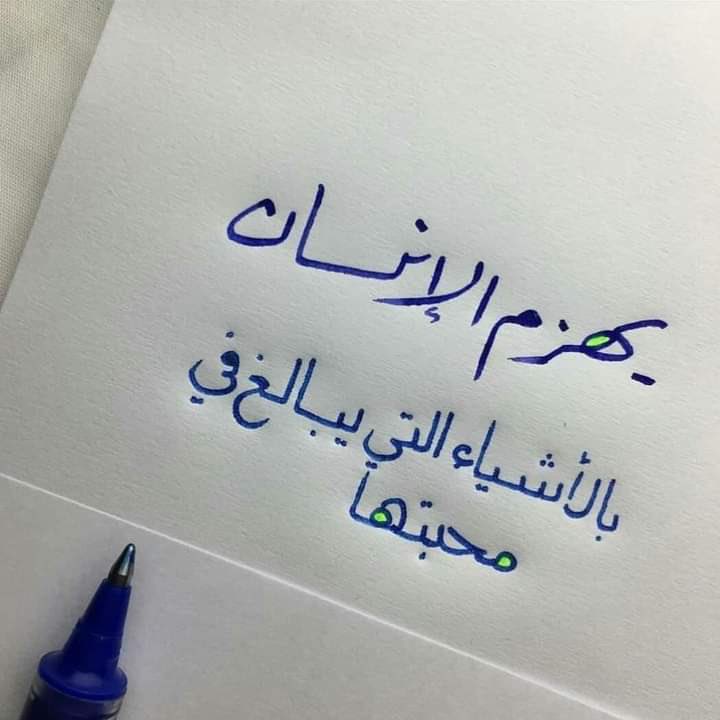 يهزم الإنسان
بالأشياء التي يبالغ في
محبتها